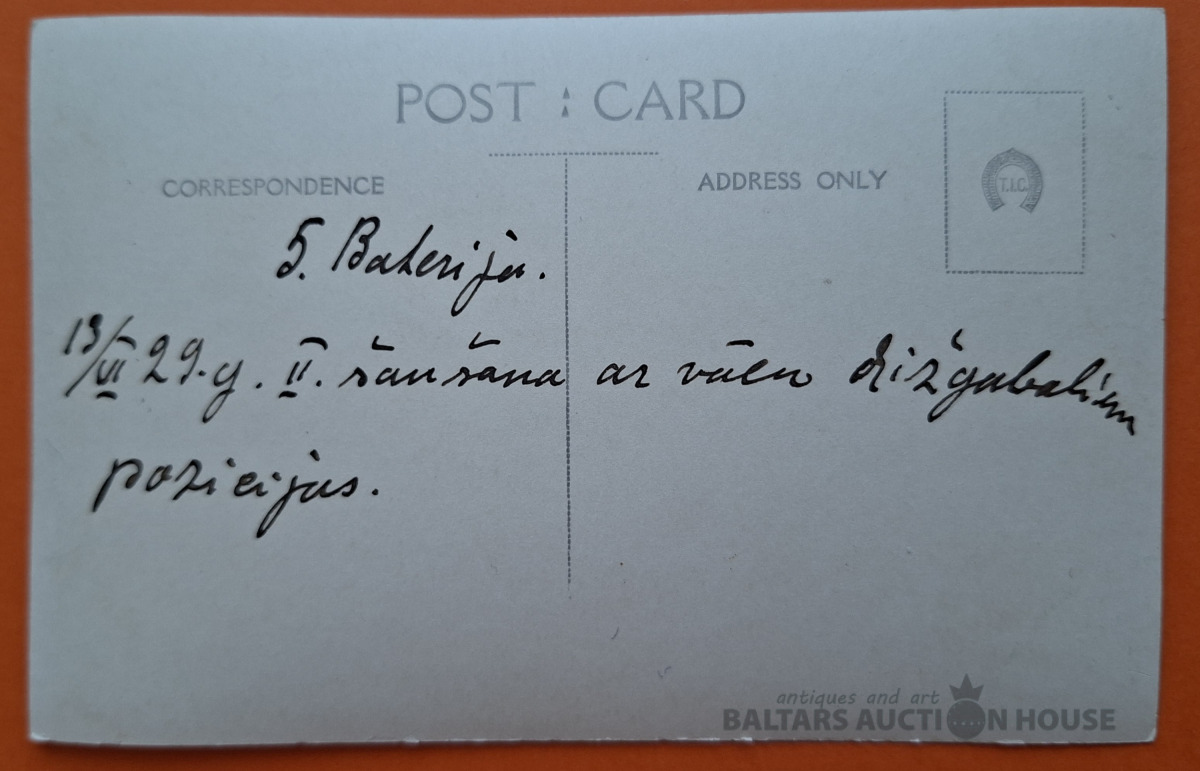 POST : CARD
CORRESPONDENCE
ADDRESS ONLY
T.I.C.
5. Baterija.
13/VI 29.g. II. šaušana ar vāeu dižgabaliem
pozicijas.
antiques and art
BALTARS AUCTION HOUSE